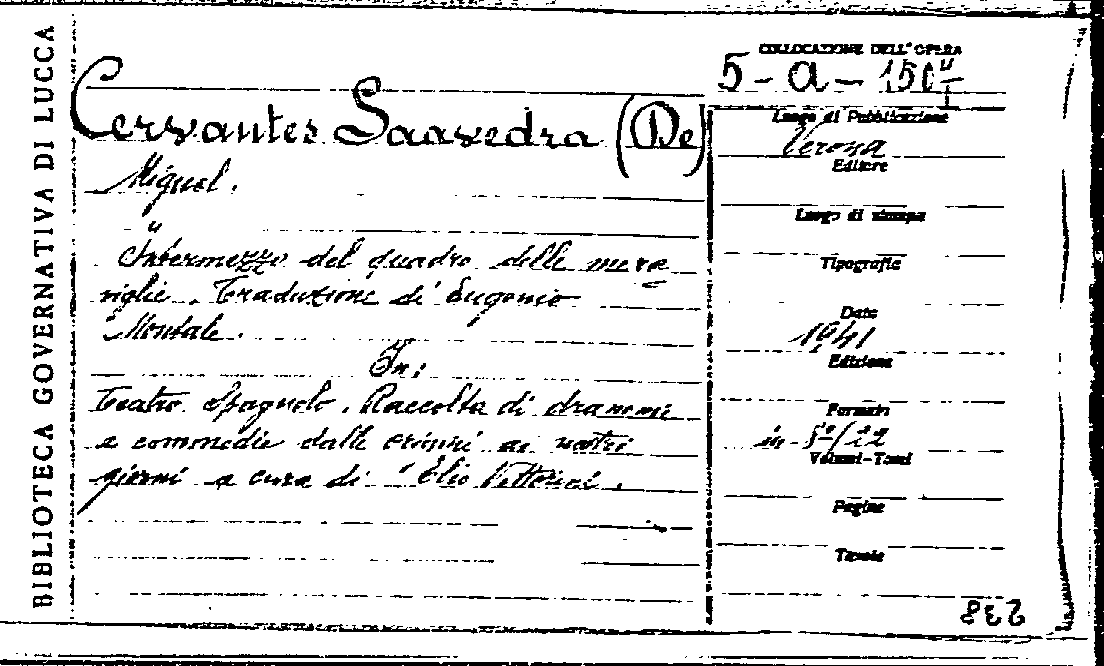 BIBLIOTECA GOVERNATIVA DI LUCCA
COLLOCAZIONE DELL'OPERA
5 - a - 150
Cervantes Saavedra (De)
Miguel.
Intermezzo del quadro delle mera
viglie. Traduzione di Eugenio
Montale.
In:
Teatro Spagnolo. Raccolta di drammi
e commedie dalle origini ai nostri
giorni a cura di Elio Vittorini.
Luogo di Pubblicazione
Verona
Editore
Luogo di stampa
Tipografia
Data
1941
Edizione
Formati
in-
Volumi-Tomi
Pagine
Tavole